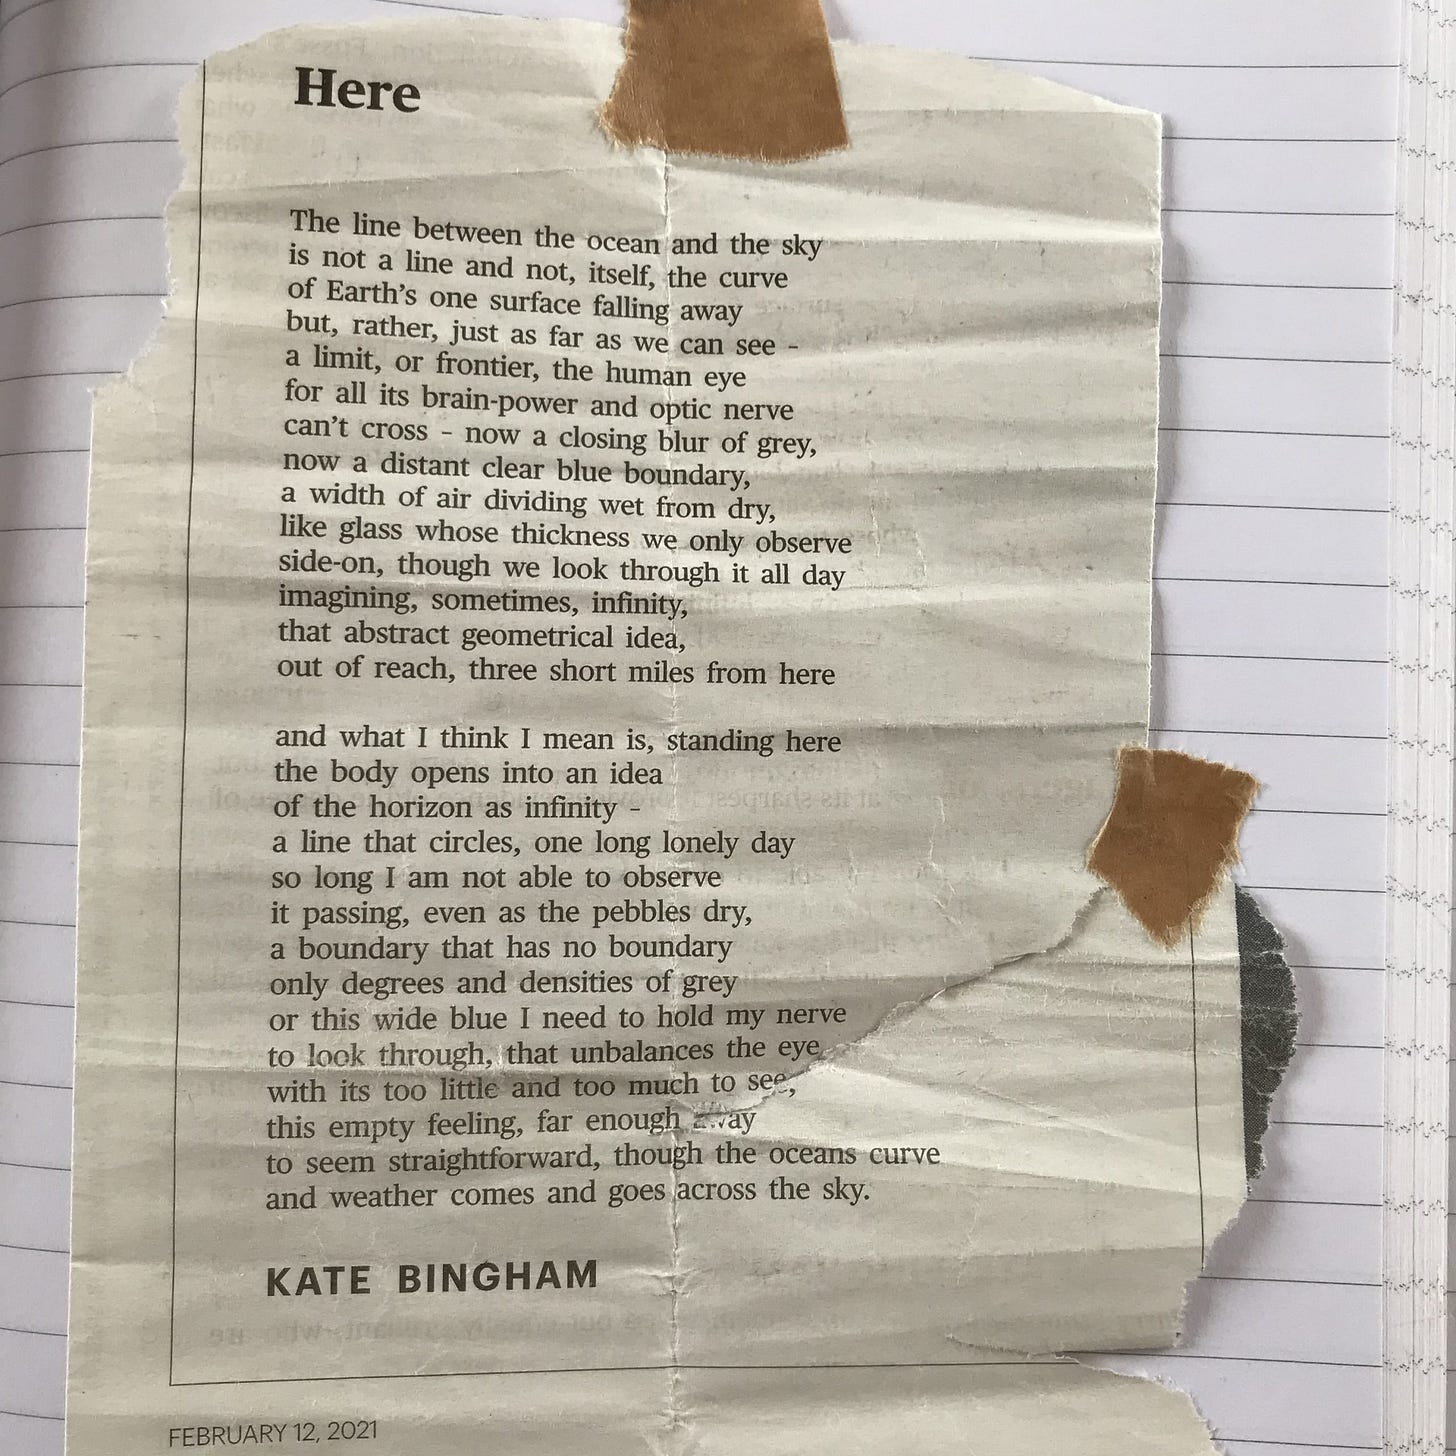 Here
The line between the ocean and the sky
is not a line and not, itself, the curve
of Earth's one surface falling away
but, rather, just as far as we can see -
a limit, or frontier, the human eye
for all its brain-power and optic nerve
can't cross - now a closing blur of grey,
now a distant clear blue boundary,
a width of air dividing wet from dry,
like glass whose thickness we only observe
side-on, though we look through it all day
imagining, sometimes, infinity,
that abstract geometrical idea,
out of reach, three short miles from here
and what I think I mean is, standing here
the body opens into an idea
of the horizon as infinity -
a line that circles, one long lonely day
so long I am not able to observe
it passing, even as the pebbles dry,
a boundary that has no boundary
only degrees and densities of grey
or this wide blue I need to hold my nerve
to look through, that unbalances the eye
with its too little and too much to see,
this empty feeling, far enough away
to seem straightforward, though the oceans curve
and weather comes and goes across the sky.
KATE BINGHAM
FEBRUARY 12, 2021